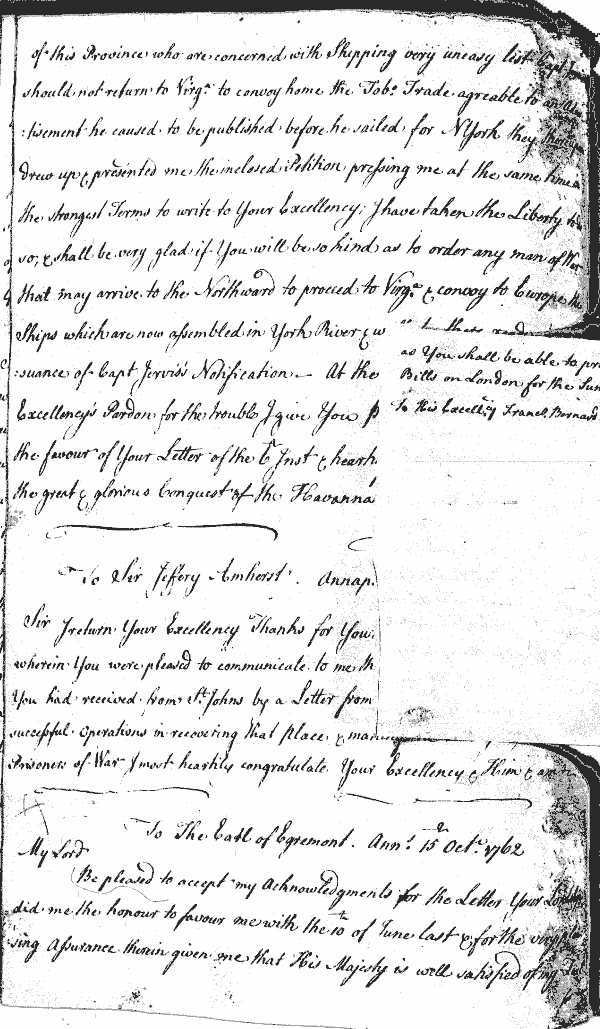 of this Province who are concerned with Shipping very uneasy lest Capt
should not return to Virg.ª to convoy home the Tob.º Trade agreable to an
:tisement he caused to be published before he sailed for NYork they
drew up & presented me the inclosed Petition pressing me at the same time in
the strongest Terms to write to Your Excellency; I have taken the Liberty to
so; & shall be very glad if You will be so kind as to order any man of War
that may arrive to the Northward to proceed to Virg.ª & convoy to Europe the
Ships which are now assembled in York River & w
:suance of Capt Jervis's Notification — At the
Excellency's Pardon for the trouble I give You
the favour of Your Letter of the 6th Inst & heart
the great & glorious Conquest of the Havanna
as You shall be able to pro
Bills on London for the Sum
To His Excell.cy Francs. Bernard
To Sir Jeffery Amherst. Annap.
Sir I return Your Excellency Thanks for You
wherein You were pleased to communicate to me th
You had received from St Johns by a Letter from
successful Operations in recovering that place & man
Prisoners of War I most heartily congratulate Your Excellency & Him & am
To The Earl of Egremont. Ann.s 15th Oct.r 1762
My Lord
Be pleased to accept my Acknowledgments for the Letter Your Lordship
did me the honour to favour me with the 10th of June last & for the very plea
sing Assurance therein given me that His Majesty is well satisfied of my